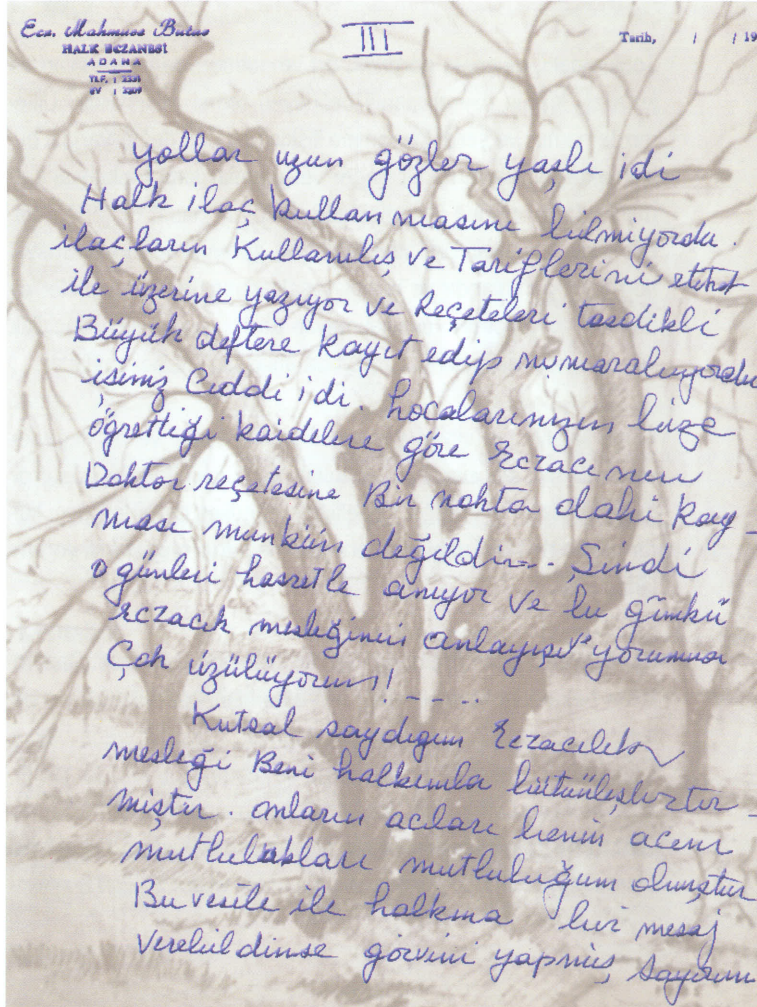 Ecz. Mahmure Butus
HALK ECZANESİ
ADANA
TLF. : 2331
EV : 3209
III
Tarih, / / 19
yollar uzun gözler yaşlı idi
Halk ilaç kullanmasını bilmiyordu.
ilaçların Kullanılış ve Tariflerini etiket
ile üzerine yazıyor ve Reçeteleri tasdikli
Büyük deftere kayıt edip numaralıyorduk
işimiz Ciddi idi. hocalarımızın bize
öğrettiği kaidelere göre Eczacının
Doktor reçetesine Bir nokta dahi koy-
ması mümkün değildir. Şimdi
o günleri hasretle anıyor ve bu günkü
Eczacık mesleğinin anlayış ve yorumuna
Çok üzülüyorum! - - ..
Kutsal saydığım Eczacılık
mesleği Beni halkımla bütünleştir-
miştir. onların acıları benim acım
mutlulukları mutluluğum olmuştur
Bu vesile ile halkıma bir mesaj
verebildimse görvimi yapmış sayarım